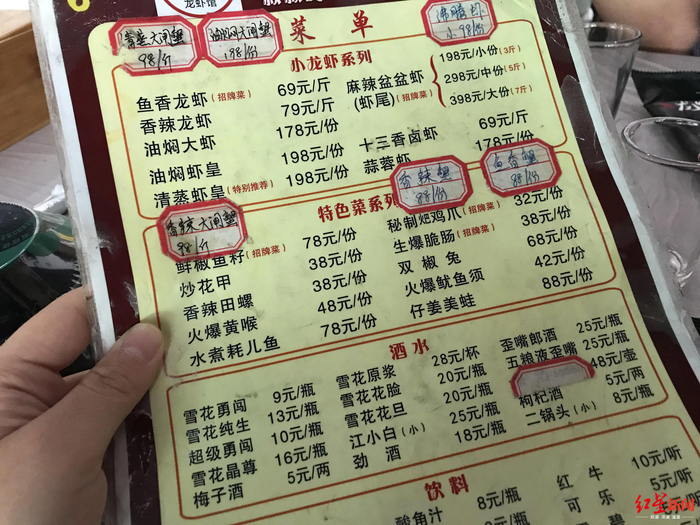 龙虾馆
菜单
香辣大闸蟹
98/斤
油焖大闸蟹
198/份
沸腾虾
小98/份
小龙虾系列
鱼香龙虾(招牌菜) 69元/斤
香辣龙虾 79元/斤
油焖大虾 178元/份
油焖虾皇 198元/份
清蒸虾皇(特别推荐) 198元/份
麻辣盆盆虾
(虾尾)(招牌菜)
198元/小份(3斤)
298元/中份(5斤)
398元/大份(7斤)
十三香卤虾 69元/斤
蒜蓉虾 178元/份
香辣蟹
88/份
88/份
香辣大闸蟹
98/斤
特色菜系列
鲜椒鱼籽(招牌菜) 78元/份
炒花甲 38元/份
香辣田螺 38元/份
火爆黄喉 48元/份
水煮耗儿鱼 78元/份
秘制㸆鸡爪(招牌菜) 32元/份
生爆脆肠(招牌菜) 38元/份
双椒兔 68元/份
火爆鱿鱼须 42元/份
仔姜美蛙 88元/份
酒水
雪花勇闯 9元/瓶
雪花纯生 13元/瓶
超级勇闯 10元/瓶
雪花晶尊 16元/瓶
梅子酒 5元/两
雪花原浆 28元/杯
雪花花脸 20元/瓶
雪花花旦 20元/瓶
江小白(小) 25元/瓶
劲酒 18元/瓶
歪嘴郎酒 25元/瓶
五粮液歪嘴 25元/瓶
48元/壶
枸杞酒 5元/两
二锅头(小) 8元/瓶
饮料
酸角汁 8元/瓶
红牛 10元/听
可乐 5元/听
红星新闻